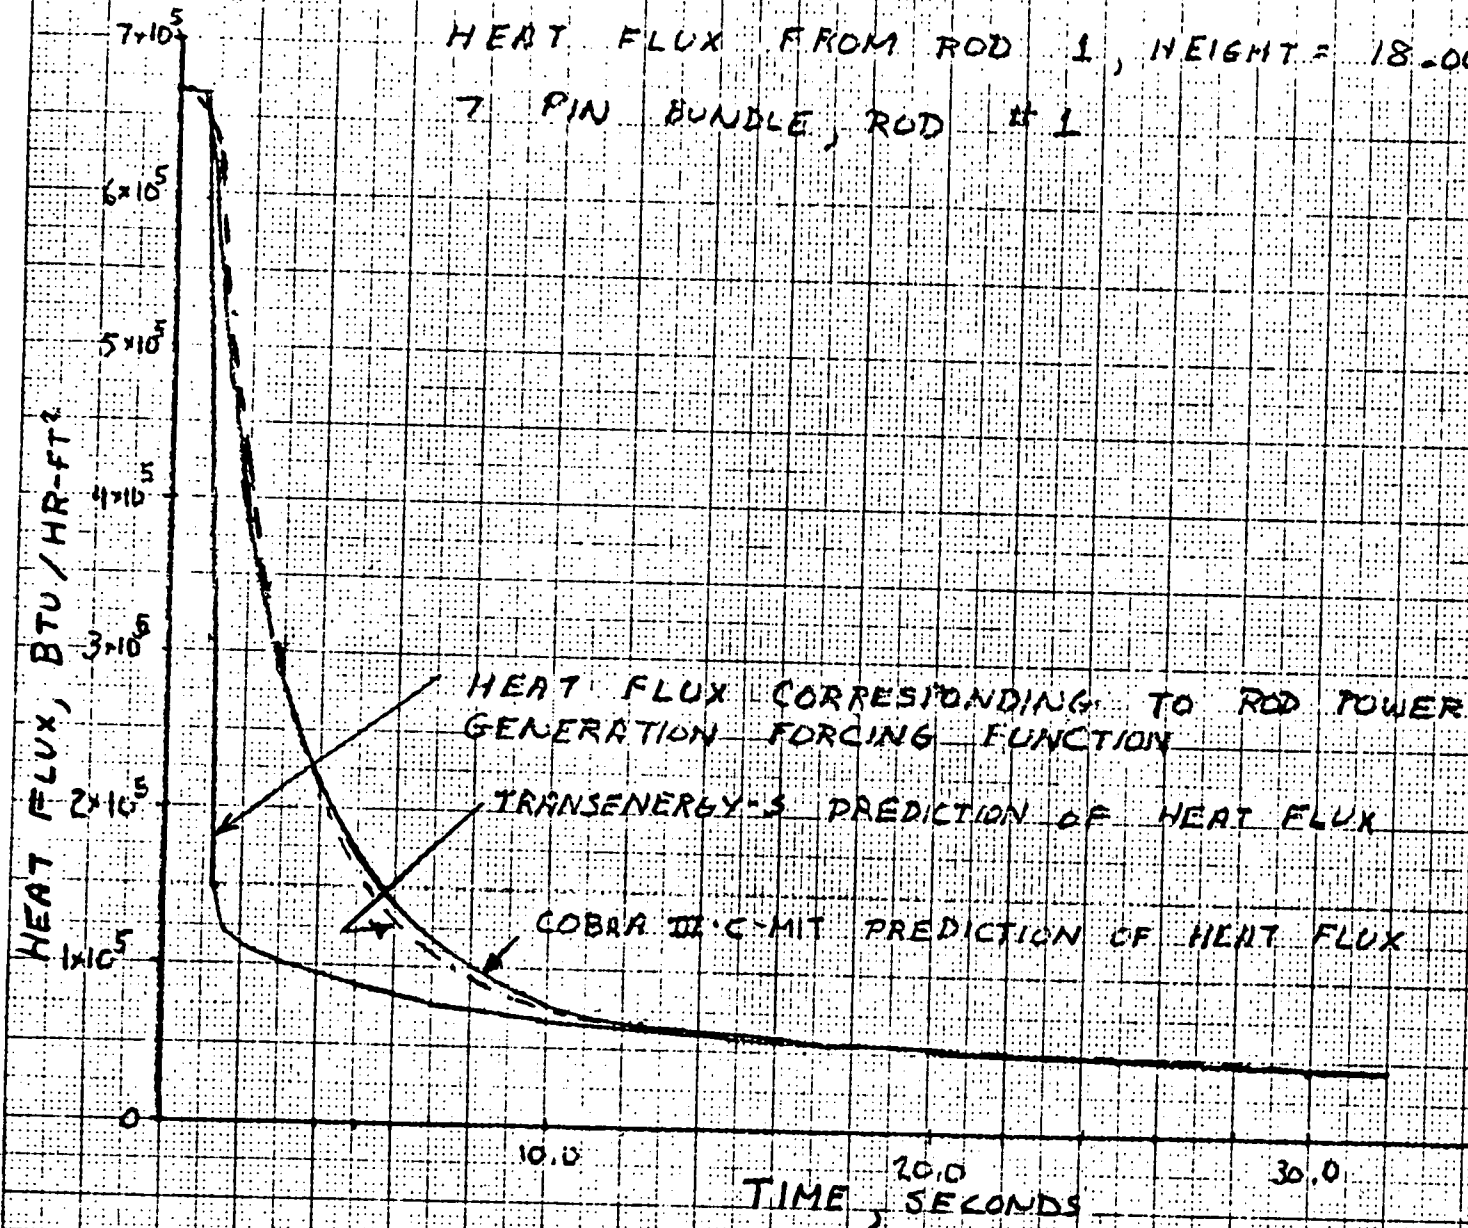 7×10⁵
HEAT FLUX FROM ROD 1, HEIGHT = 18.00
7 PIN BUNDLE, ROD #1
6×10⁵
5×10⁵
4×10⁵
3×10⁵
2×10⁵
1×10⁵
0
HEAT FLUX, BTU/HR-FT²
HEAT FLUX CORRESPONDING TO ROD POWER
GENERATION FORCING FUNCTION
TRANSENERGY-S PREDICTION OF HEAT FLUX
COBRA III-C-MIT PREDICTION OF HEAT FLUX
10.0
20.0
30.0
TIME, SECONDS